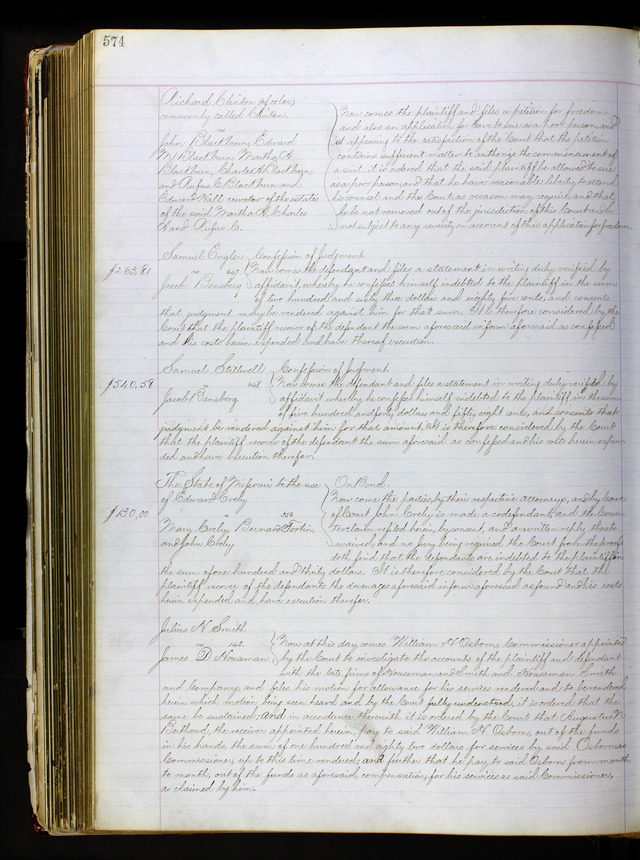 574
Richard Clinton (of color)
commonly called Clinton.
vs
John Blackburn, Edward
M. Blackburn, Martha A.
Blackburn, Charles A. Blackburn,
and Rufus C. Blackburn and
Edward Hall curator of the estates
of the said Martha A. Charles
A. and Rufus C.
Now comes the plaintiff and files a petition for freedom
and also an application for leave to sue as a poor person, and
it appearing to the satisfaction of the Court that the petition
contains sufficient matter to authorize the commencement of
a suit, it is ordered that the said plaintiff be allowed to sue
as a poor person, and that he have reasonable liberty to attend
his counsel and the Court, as occasion may require, and that
he be not removed out of the jurisdiction of this Court and be
not subject to any severity on account of this application for freedom.
Samuel Engler
vs 447
Jacob Bensberg
Confession of Judgment
$263,81
Now comes the defendant and files a statement in writing duly verified by
affidavit whereby he confesses himself indebted to the plaintiff in the sum
of two hundred and sixty three dollars and eighty five cents, and consents
that judgment may be rendered against him for that sum. It is therefore considered by the
Court that the plaintiff recover of the defendant the sum aforesaid in form aforesaid as confessed
and his costs herein expended and have thereof execution.
Samuel Stillwell
vs 448
Jacob Bensberg
Confession of Judgment.
$540,58
Now comes the defendant and files a statement in writing duly verified by
affidavit whereby he confesses himself indebted to the plaintiff in the sum
of five hundred and forty dollars and fifty eight cents, and consents that
judgment be rendered against him for that amount. It is therefore considered by the Court
that the plaintiff recover of the defendant the sum aforesaid as confessed and his costs herein expen
ded and have execution therefor.
The State of Missouri to the use
of Edward Croby
vs
Mary Croby Bernard Fortin,
and John Croby
On Bond.
$130,00
Now come the parties, by their respective attorneys, and by leave
of Court John Croby is made a codefendant, and the Coun
terclaim refiled herein, by consent, and a written reply thereto
waived, and no jury being required the Court from the proofs
doth find that the defendants are indebted to the plaintiff in
the sum of one hundred and thirty dollars. It is therefore considered by the Court that the
plaintiff recover of the defendants the damages aforesaid in form aforesaid as found and his costs
herein expended and have execution therefor.
Julius N. Smith
vs 142.
James D. Houseman
Now at this day comes William H. Osborn, Commissioner appointed
by the Court to investigate the accounts of the plaintiff and defendant
with the late firms of Houseman and Smith and Houseman Smith
and Company, and files his motion for allowance for his services rendered and to be rendered
herein which motion being seen heard and by the Court fully understood, it is ordered that the
same be sustained. And in accordance therewith it is ordered by the Court that Augustus N.
Barthoud, the receiver appointed herein, pay to said William H. Osborn, out of the funds
in his hands, the sum of one hundred and eighty two dollars for services by said Osborn as
Commissioner, up to this time rendered; and further that he pay to said Osborn from month
to month, out of the funds as aforesaid, compensation for his services as said Commissioner,
as claimed by him.